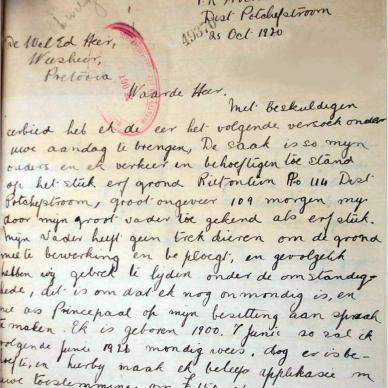 Dist Potchefstroom
49370
25 Oct 1920
De Wel Ed Heer,
Weesheer,
Pretoria
Waarde Heer.
Met Beskuldigen
eerbied heb ek de eer het volgende versoek onder
uwe aandag te brengen, De saak is so myn
ouders en ek verkeer in behoeftigen toe stand
op het stuk erf grond Rietfontein No 114 Dist
Potchefstroom, groot ongeveer 109 morgen my
door myn groot vader toe gekend als erf stuk.
Myn Vader heeft geen trek dieren om de grond
mee te bewerking en be ploegt, en gevolgelik
hebben wy gebrek te lyden onder de om standig-
hede, dit is om dat ek nog onmondig is, en
as Princepaal op myn besetting aan spraak
te maken. Ek is geboren 1900. 7 Junie so sal ik
volgende Junie 1921 mondig wees. dog er is be-
en hierby maak ek beleefs applikasie
uwe toestemming om